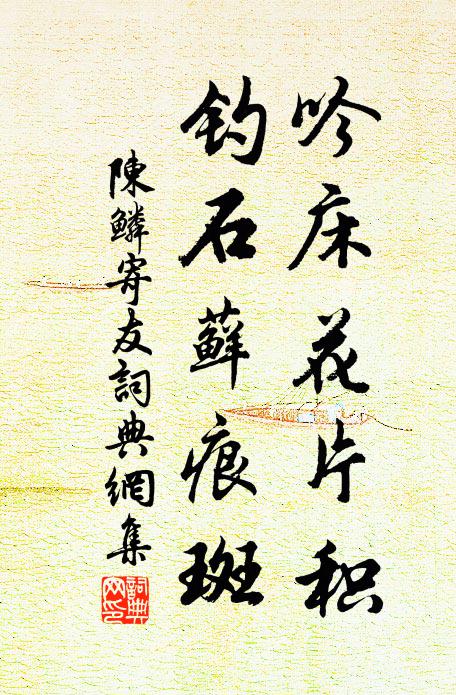 吟床花片积
钓石藓痕斑
陳鱗寄友詞典網集
詞典网印